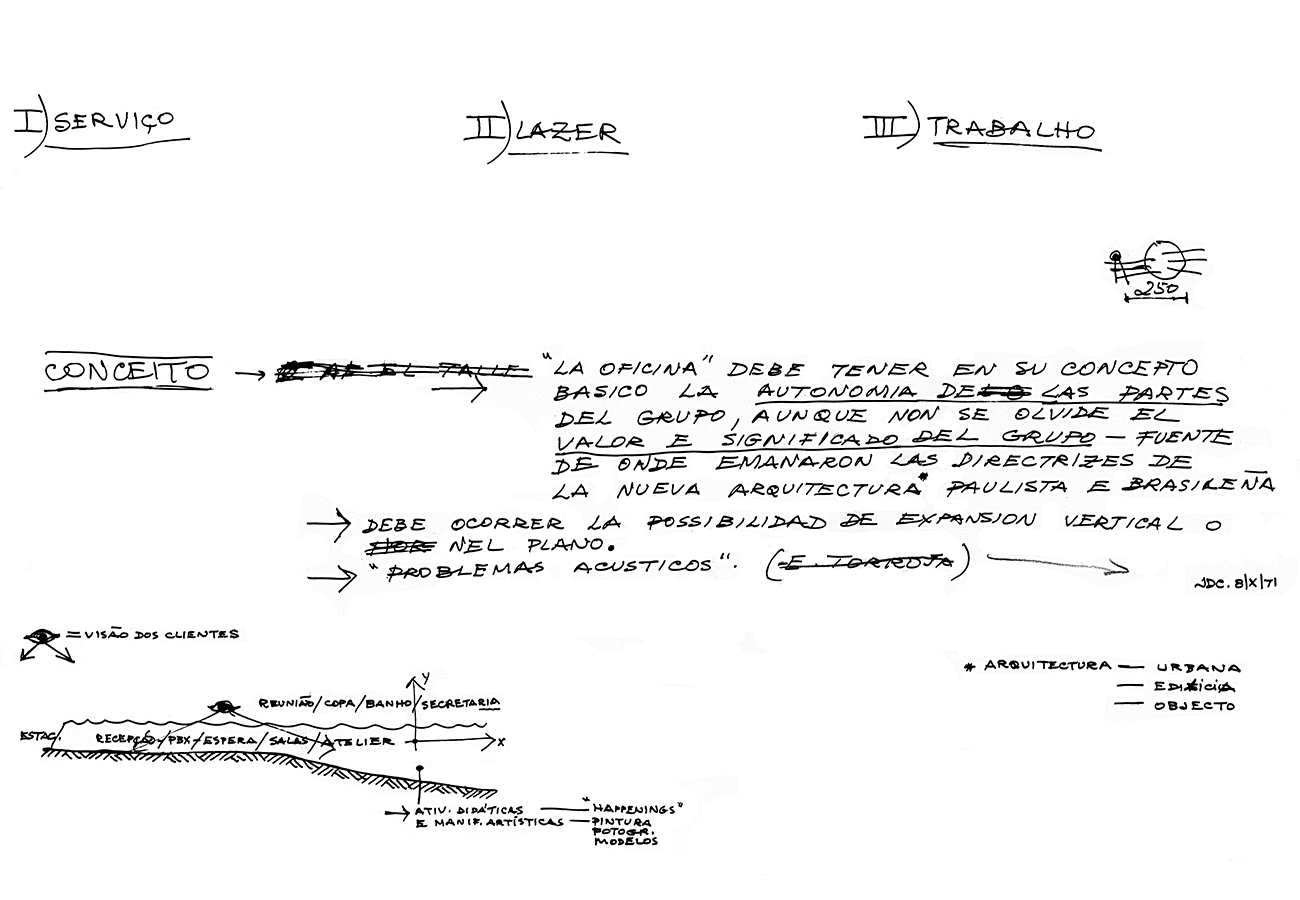 I) SERVIÇO
II) LAZER
III) TRABALHO
250
CONCEITO → "LA OFICINA" DEBE TENER EN SU CONCEPTO
BASICO LA AUTONOMIA DE LAS PARTES
DEL GRUPO, AUNQUE NON SE OLVIDE EL
VALOR E SIGNIFICADO DEL GRUPO — FUENTE
DE ONDE EMANARON LAS DIRECTRIZES DE
LA NUEVA ARQUITECTURA* PAULISTA E BRASILEÑA
→ DEBE OCORRER LA POSSIBILIDAD DE EXPANSION VERTICAL O
NEL PLANO.
→ "PROBLEMAS ACUSTICOS". (E. TORROJA) →
JDC. 8/X/71
= VISÃO DOS CLIENTES
* ARQUITECTURA — URBANA
— EDIFICIA
— OBJECTO
Y
REUNIÃO/COPA/BANHO/SECRETARIA
ESTAC.
RECEPÇÃO/PBX/ESPERA/SALAS/ATELIER
X
→ ATIV. DIDÁTICAS — "HAPPENINGS"
E MANIF. ARTÍSTICAS — PINTURA
FOTOGR.
MODELOS